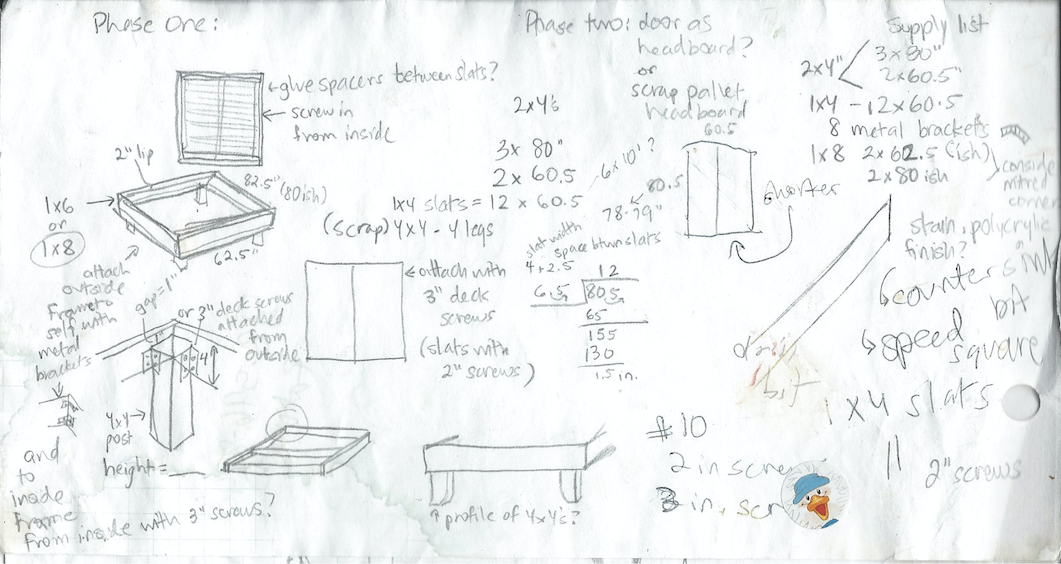 Phase One:
glue spacers between slats?
screw in
from inside
2" lip
82.5"
(80ish)
1x6
or
1x8
62.5"
attach
outside
frame to
self with
metal
brackets
gap = 1"
or 3" deck screws
attached
from
outside
4"
4x4
post
height =
and
to
inside
frame
from inside with 3" screws?
2x4's
3x 80"
2x 60.5
1x4 slats = 12 x 60.5
(scrap) 4x4 - 4 legs
attach with
3" deck
screws
(slats with
2" screws)
profile of 4x4's?
Phase two: door as
headboard?
or
scrap pallet
headboard
60.5
6x10'?
80.5
78-79"
shorter
slat width
space btwn slats
4 + 2.5"
12
6.5
80.5
65
155
130
1.5 in.
Supply list
2x4"
3x80"
2x60.5"
1x4 - 12x60.5
8 metal brackets
1x8 2x62.5 (ish)
2x80 ish
consider
mitred
corner
stain, polycrylic
finish?
countersink
bit
speed
square
drill
bit
1x4 slats
2" screws
#10
2 in screw
3 in. scr